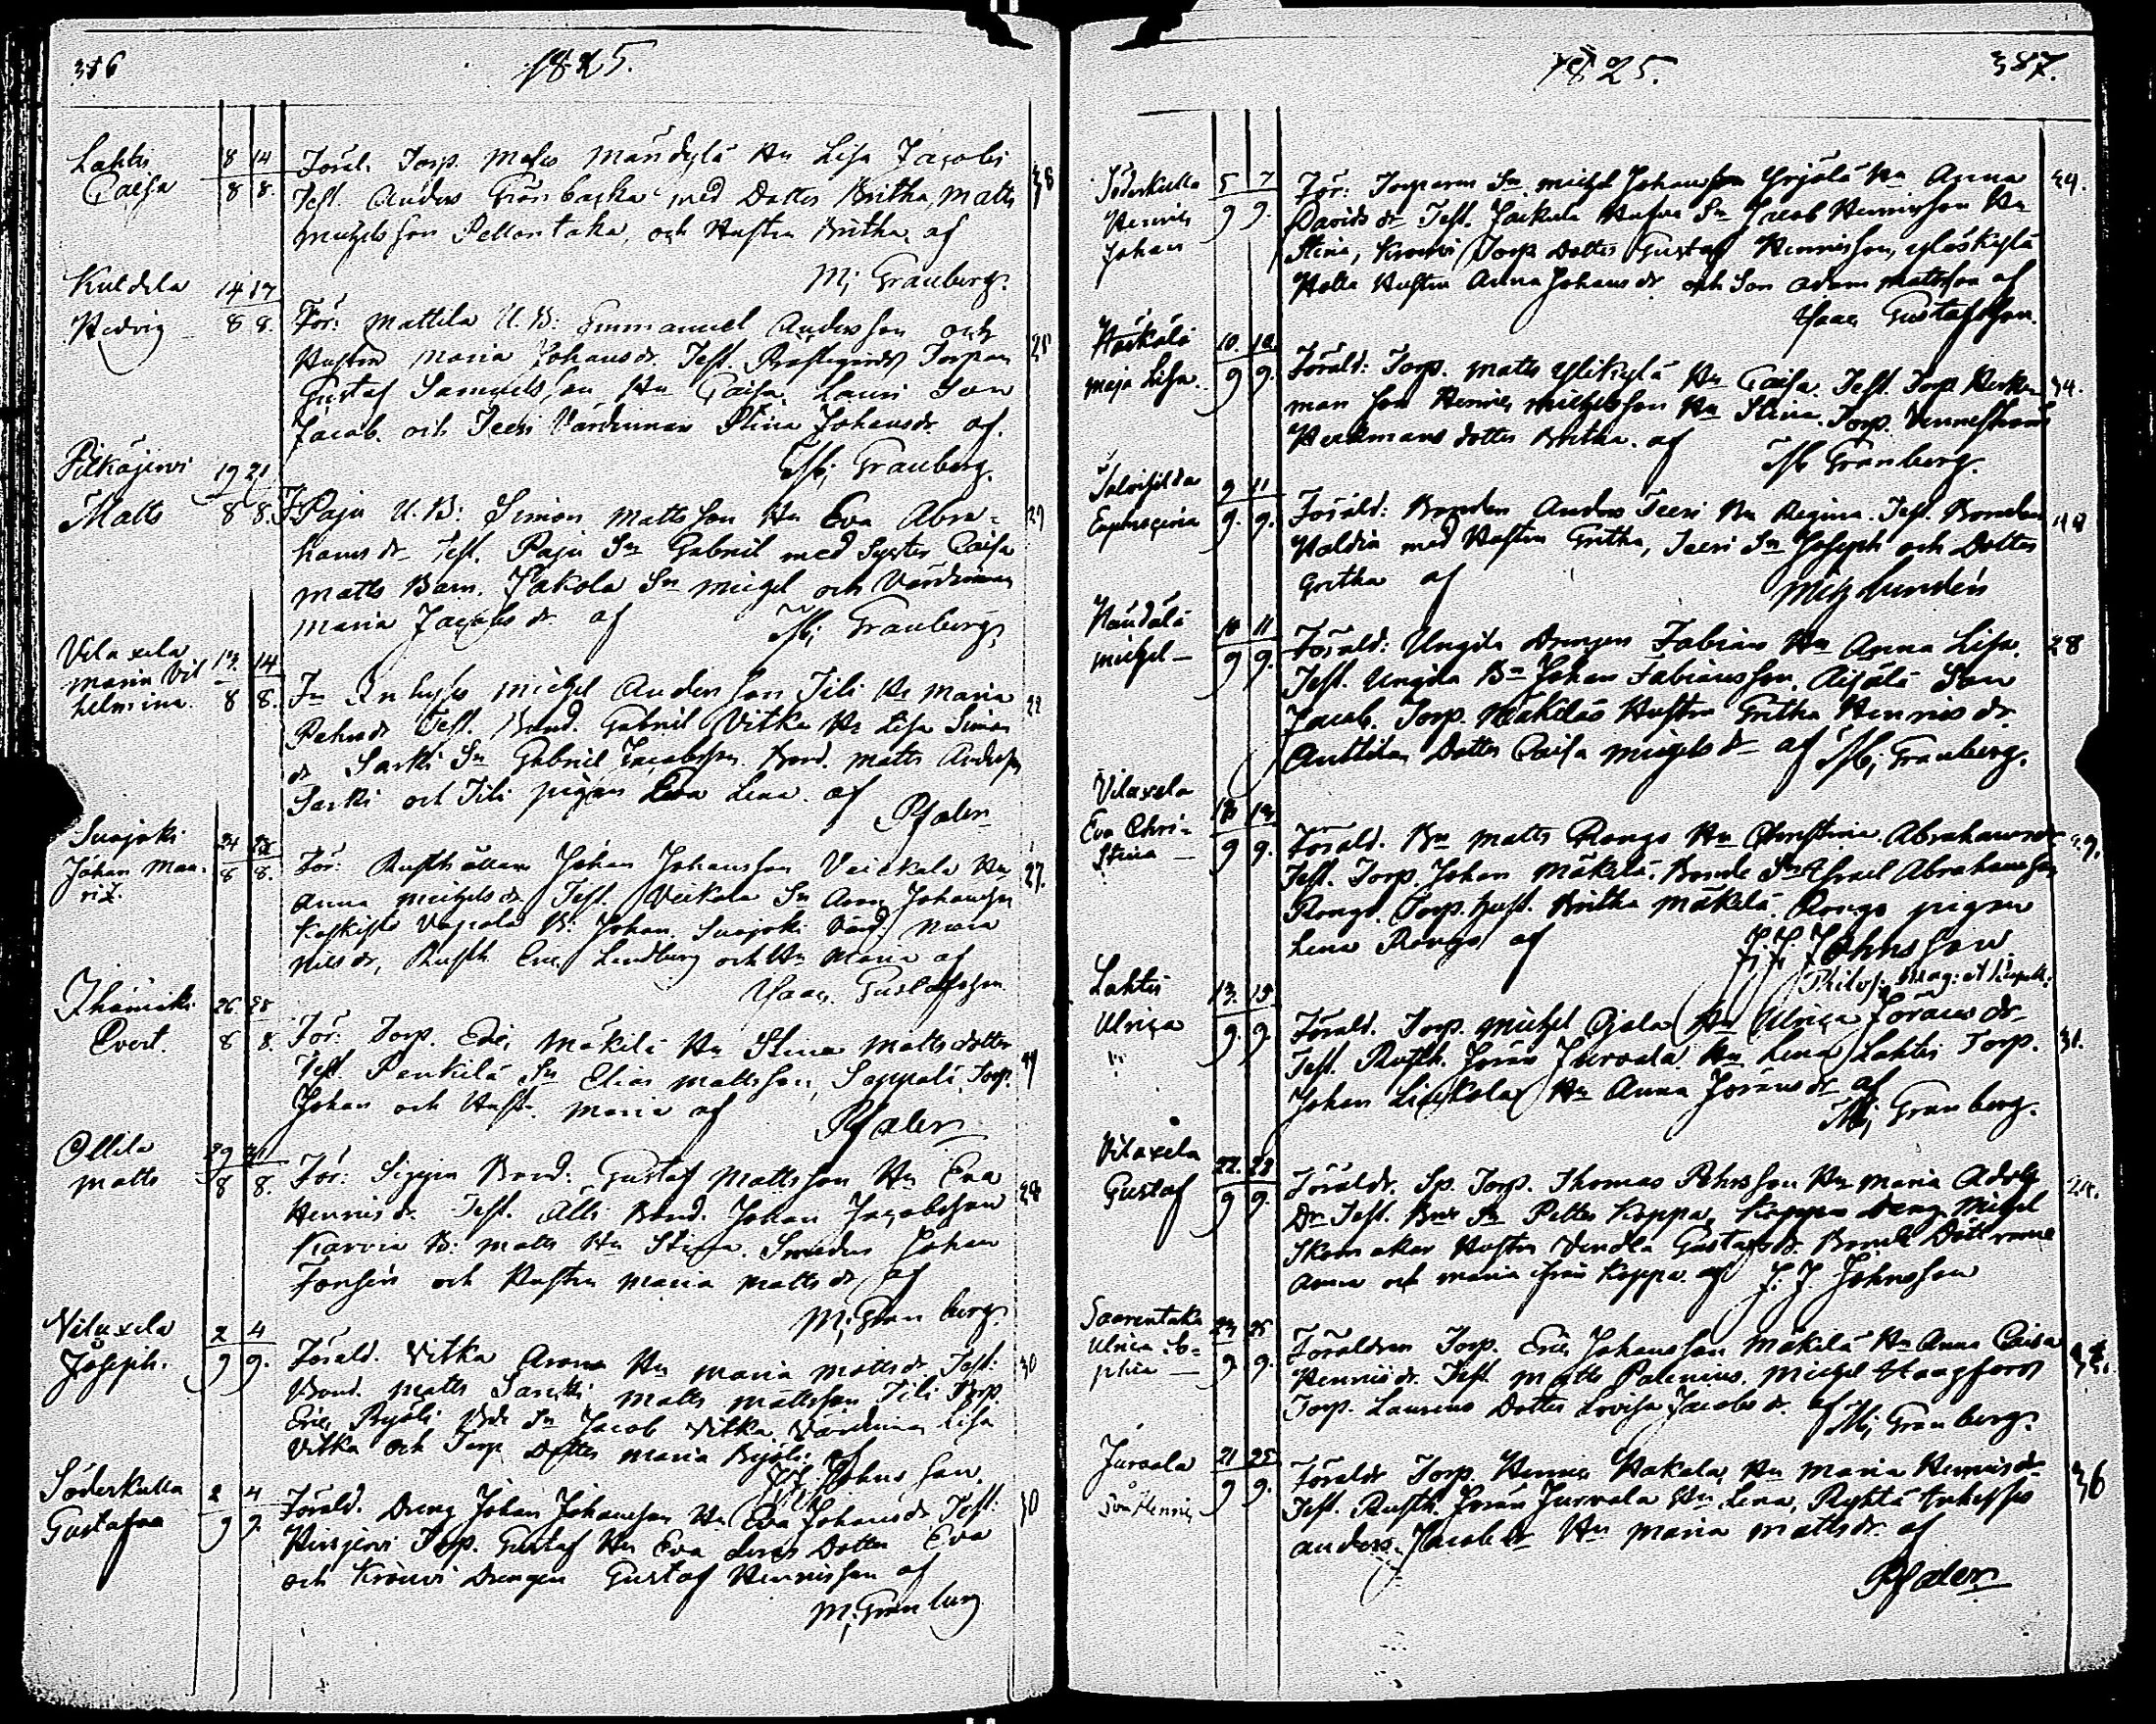 386
1825.
Lahtis 8 14 Föräl. Torp. Mats Mändylä Hu Lisa Jacobs
Caisa 8 8. Test. Anders Grönbacka med Dotter Britha, Matts 38
Michelsson Pellontaka, och Hustru Britha. af
M: Granberg.
Kuldela 14 17
Hedvig 8 8. För: Mattila U.B: Emmanuel Andersson och
Hustru Maria Johansdr. Test. Prästegårds Torpar 25
Gustaf Samuelsson Hu Caisa, Lauri Son
Jacob. och Teeri Värdinnan Stina Johansdr. af.
M: Granberg.
Pitkäjervi 19 21
Matts 8 8. F Paju U.B: Simon Mattsson Hu Eva Abra- 29
hamsdr Test. Paju Sn Gabriel med Syster Caisa
Matts Barn. Jakola Sn Michel och Värdinnan
Maria Jacobsdr af M: Granberg.
Viluxela 13. 14
Maria Vil
helmina. 8 8. Fr Inhyses Michel Andersson Tili Hu Maria 22
Pehrsdr Test. Bond. Gabriel Vitka Hu Lisa Simons
dr Sarki Sn Gabriel Jacobsson. Bond. Matts Andersson
Sarki och Tili pigan Eva Lena. af Pfaler
Suojoki 24 28
Johan Mau- 8 8. För: Rusthållaren Johan Johansson Veickala Hu 27.
ritz. Anna Michelsdr. Test. Veikola Sn Aron Johansson
Koskisto B: Johan. Suojoki Värd: Maria
Nilsdr, Rusth Eric Lindberg och Hu Maria af
Isaac Gustafsson
Ihämäki 26 28
Evert. 8 8. För: Torp. Eric Mäkilä Hu Stina Mattsdotter
Test. Penkilä Sn Elias Mattsson, Seppälä Torp.
Johan och Hustr. Maria af Pfaler
Ollila 29 31
Matts 8 8. För: Bond. Gustaf Mattsson Hu Eva 28
Henricsdr. Test. Älli Bond. Johan Jacobsson
Karvia B: Matts Hu Stina. Smeden Johan
Forsén och Hustru Maria Mattsdr af
M: Granberg.
Viluxela 2 4
Joseph. 9 9. Föräld. Vitka Arons Hu Maria Mattsdr Test: 30
Bond. Matts Sarki Matts Mattsson Tili Torp.
Eric Ryöli Bde Sn Jacob Vitka Värdinna Lisa
Vitka och Torp Dotter Maria Ryöli. af
J.J. Johnsson.
Söderkulla 2 4
Gustafva 9 9. Föräld. Dreng Johan Johansson Hu Eva Johansdr Test: 30
Hirsjervi Torp. Gustaf Hu Eva deras Dotter Eva
och Krouvi Drengen Gustaf Henricsson af
M: Granberg
1825.
387.
Söderkulla 5 7 För: Torparen Sn Michel Johansson Yrjölä Hu Anna 29.
Henric 9 9. Davids dr Test. Jackula Hufva Sn Jacob Henricsson Hu
Johan Stina, Krouvi Torp Dotter Gustaf Henricsson, Yläskylä
Halla Hustru Anna Johansdr och Son Adam Mattsson af
Isaac Gustafsson.
Härkälä 10. 12.
Maja Lisa. 9 9. Föräld: Torp. Matts Ylikylä Hu Caisa. Test. Torp Herk- 34.
man Son Henric Michelsson Hu Stina. Torp. Vennströms
Herkmans Dotter Britha. af M Granberg.
Salvihilda 9 11
Euphrosina 9. 9. Föräld: Bonden Anders Teeri Hu Regina. Test. Bonden 40
Haldia med Hustru Gritha, Teeri Sn Joseph och Dotter
Gritha af Mich Lundén
Händälä 10 11
Michel — 9 9. Föräld: Ungila Drengen Fabian Hu Anna Lisa. 28
Test. Ungila Bn Johan Fabiansson, Äijälä Son
Jacob. Torp. Mäkiläs Hustru Gritha Henricsdr.
Anttilan Dotter Caisa Michelsdr af M: Granberg.
Viluxela
Eva Chri-
stina — 9 9 Föräld. Bn Matts Rongo Hu Christina Abrahamsdr 29.
Test. Torp. Johan Mäkelä. Bonde Sn Israel Abrahamsson
Rongo. Torp. hust. Britha Mäkelä. Rongo pigan
Lena Rongo af J.J. Johnsson
Philos: Mag:
Lahtis 13. 15
Ulrica 9. 9. Föräld. Torp. Michel Ojala Hu Ulrica Göransdr 31.
Test. Rusth. Göran Jurvala Hu Lena, Lahtis Torp.
Johan Linkola Hu Anna Göransdr af
M: Granberg.
Viluxela 22. 23
Gustaf 9 9. Föräldr. Sp. Torp. Thomas Pehrsson Hu Maria Adolfs 24.
Dr Test. Bns Sn Petter Koppa, Koppas Dreng Michel
Skomakar Hustru Vendla Gustafsdr. Bonde Döttrarne
Anna och Maria från Koppa af J.J. Johnsson
Saarentaka 23 25
Ulrica So-
phia — 9. 9. Föräldrar Torp. Eric Johansson Mäkelä Hu Anna Caisa 32.
Henricsdr. Test Matts Palenius. Michel Haagfors
Torp. Laurens Dotter Lovisa Jacobsdr. af M: Granberg.
Jurvala 21 25
9 9. Föräldr Torp. Henric Hakala, Hu Maria Henricsdr 36
Test. Rusth. Göran Jurvala Hu Lena, Ryhtä Inhyses
Anders Jacobsson Hu Maria Mattsdr. af
Pfaler